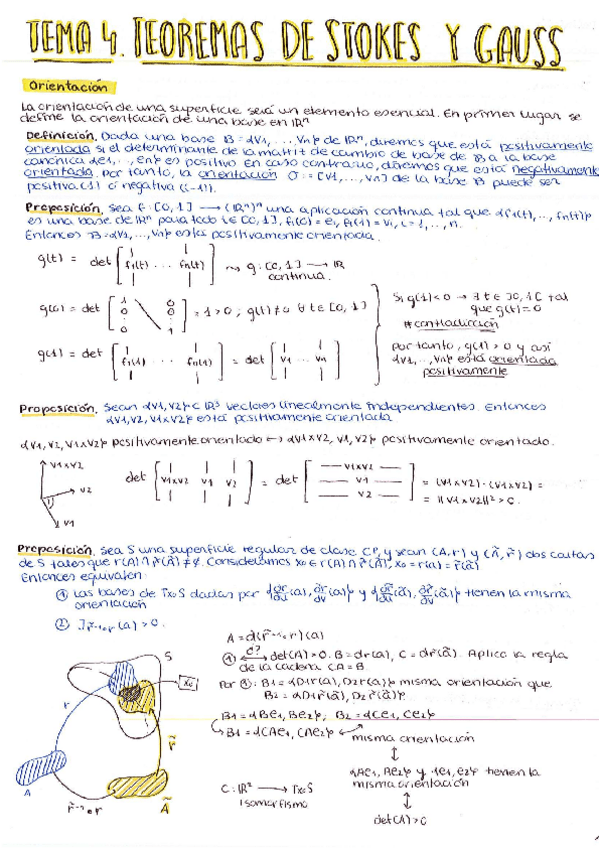 TEMA 4. TEOREMAS DE STOKES Y GAUSS
Orientación
La orientación de una superficie será un elemento esencial. En primer lugar se
define la orientación de una base en ℝⁿ
Definición. Dada una base B = {v1, ..., vn} de ℝⁿ, diremos que está positivamente
orientada si el determinante de la matriz de cambio de base de B a la base
canónica {e1, ..., en} es positivo. En caso contrario, diremos que está negativamente
orientada. Por tanto, la orientación σ = [v1, ..., vn] de la base B puede ser
positiva (1) o negativa (-1).
Proposición. Sea f: [0,1] → (ℝⁿ)ⁿ una aplicación continua tal que {f1(t), ..., fn(t)}
es una base de ℝⁿ para todo t ∈ [0,1], fi(0) = ei, fi(1) = vi, i = 1, ..., n.
Entonces B = {v1, ..., vn} está positivamente orientada.
g(t) = det [f1(t) ... fn(t)] ⇝ g: [0,1] → ℝ
continua.
g(0) = det [1 0 0 0 0 1] = 1 > 0 ; g(t) ≠ 0 ∀ t ∈ [0,1]
Si g(1) < 0 → ∃ t ∈ ]0,1[ tal
que g(t) = 0
#contradicción
g(1) = det [f1(1) ... fn(1)] = det [v1 ... vn]
por tanto, g(1) > 0 y así
{v1, ..., vn} está orientada
positivamente
Proposición. Sean {v1, v2} ⊂ ℝ³ vectores linealmente independientes. Entonces
{v1, v2, v1×v2} está positivamente orientada
{v1, v2, v1×v2} positivamente orientado ↔ {v1×v2, v1, v2} positivamente orientado.
v1×v2
v2
v1
det [v1×v2 v1 v2] = det [v1×v2 v1 v2] = (v1×v2)·(v1×v2) =
= ‖v1×v2‖² > 0.
Proposición. Sea S una superficie regular de clase Cᵖ, y sean (A, r) y (Ã, r̃) dos cartas
de S tales que r(A) ∩ r̃(Ã) ≠ ∅. Consideramos x0 ∈ r(A) ∩ r̃(Ã), x0 = r(a) = r̃(ã)
Entonces equivalen:
① Las bases de Tx0S dadas por {∂r/∂u(a), ∂r/∂v(a)} y {∂r̃/∂u(ã), ∂r̃/∂v(ã)} tienen la misma
orientación
② J r̃⁻¹∘r (a) > 0.
A = d(r̃⁻¹∘r)(a)
① ⟷ d? det(A) > 0. B = dr(a), C = dr̃(ã). Aplico la regla
de la cadena CA = B
Por ①: B1 = {D1r(a), D2r(a)} misma orientación que
B2 = {D1r̃(ã), D2r̃(ã)}.
B1 = {Be1, Be2}; B2 = {Ce1, Ce2}
B1 = {CAe1, CAe2}
misma orientación
{Ae1, Ae2} y {e1, e2} tienen la
misma orientación
det(A) > 0
C: ℝ² → Tx0S
isomorfismo
S
x0
r
r̃
A
Ã
r̃⁻¹∘r